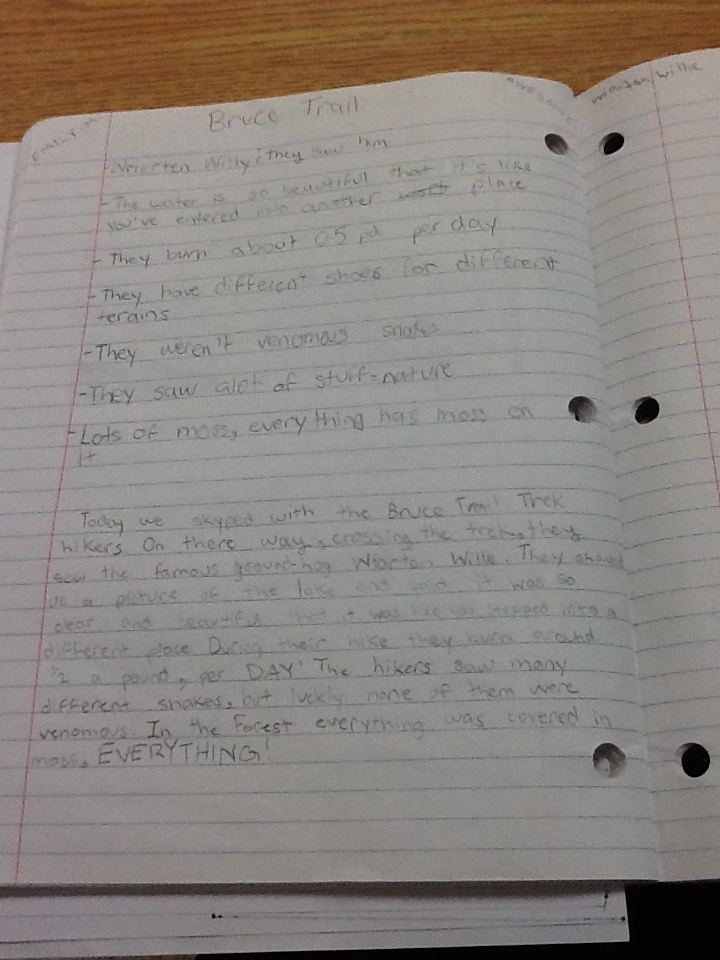 Emily.M
awesome
wiarton willie
Bruce Trail
-Wriecten Willy; They saw him
-The water is so beautiful that it's like
you've entered into another place
-They burn about 0.5 pd per day
-They have different shoes for different
terains
-They weren't venomous snakes
-They saw alot of stuff=nature
-Lots of moss, everything has moss on
it
Today we skyped with the Bruce Trail Trek
hikers On there way, crossing the trek, they
saw the famous ground-hog Wiarton Willie. They showed
us a picture of the lake and said it was so
clear and beautiful that it was like you stepped into a
different place During their hike they burn around
1/2 a pound, per DAY! The hikers saw many
different snakes, but luckly none of them were
venomous. In the Forest everything was covered in
moss, EVERYTHING!